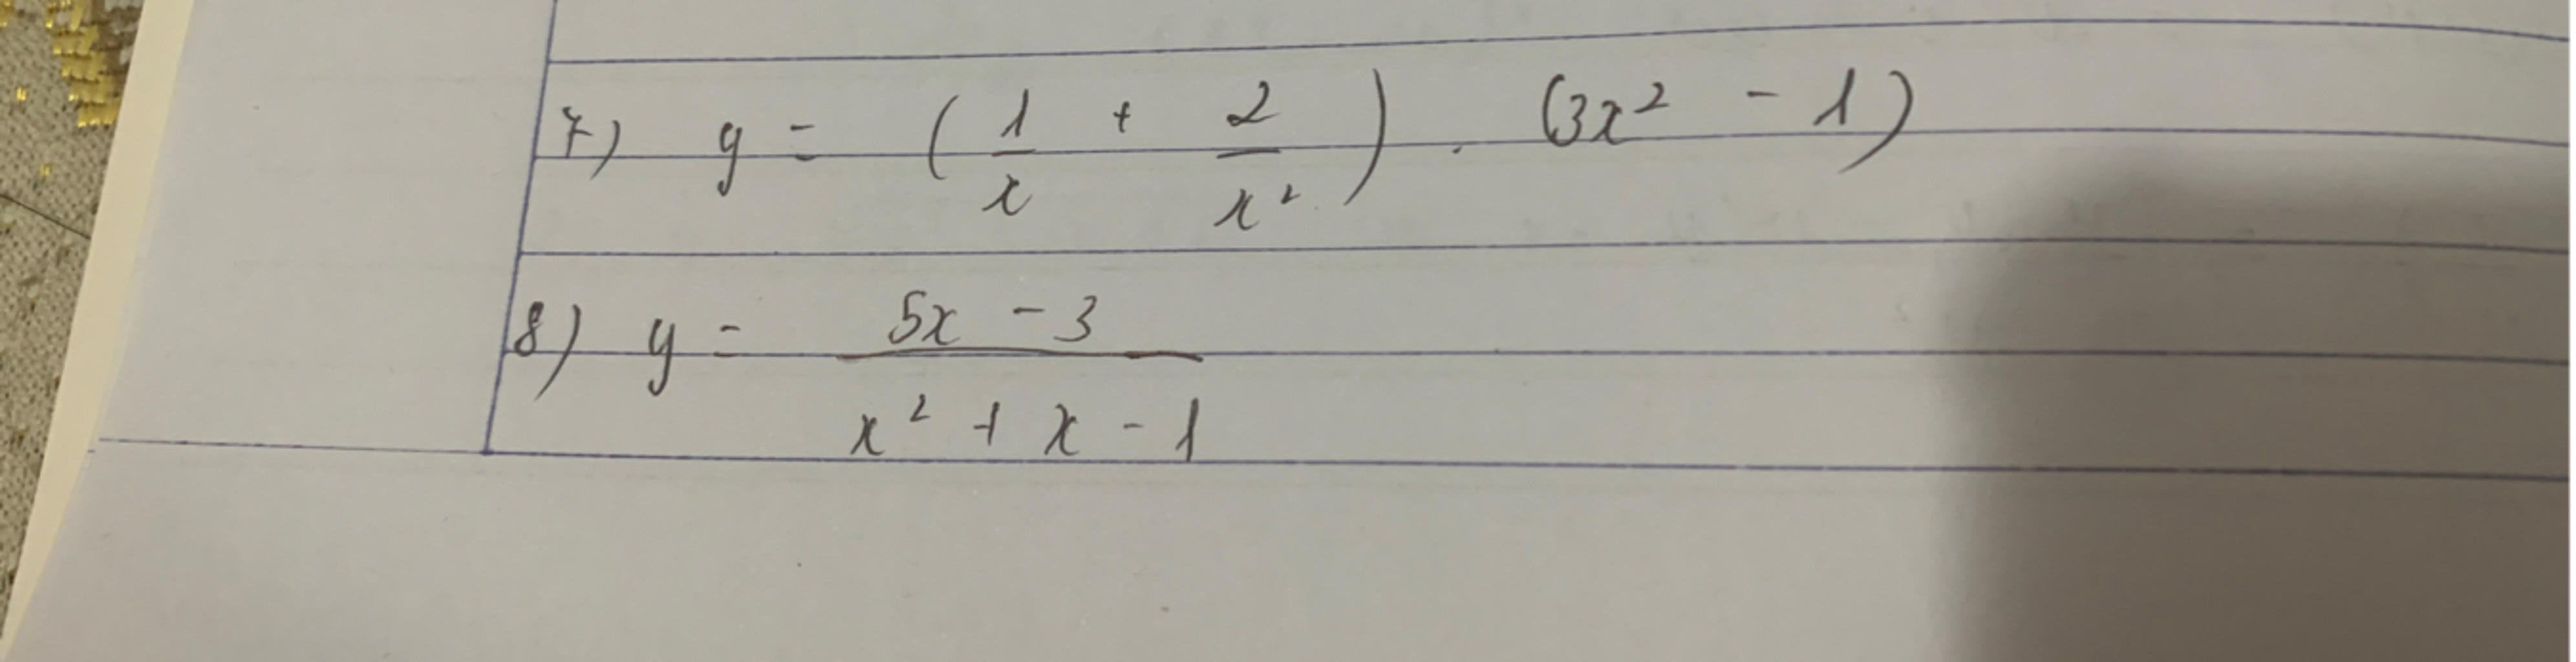 7) y = (1/x + 2/x²) . (3x² - 1)
8) y = (5x - 3)/(x² + x - 1)